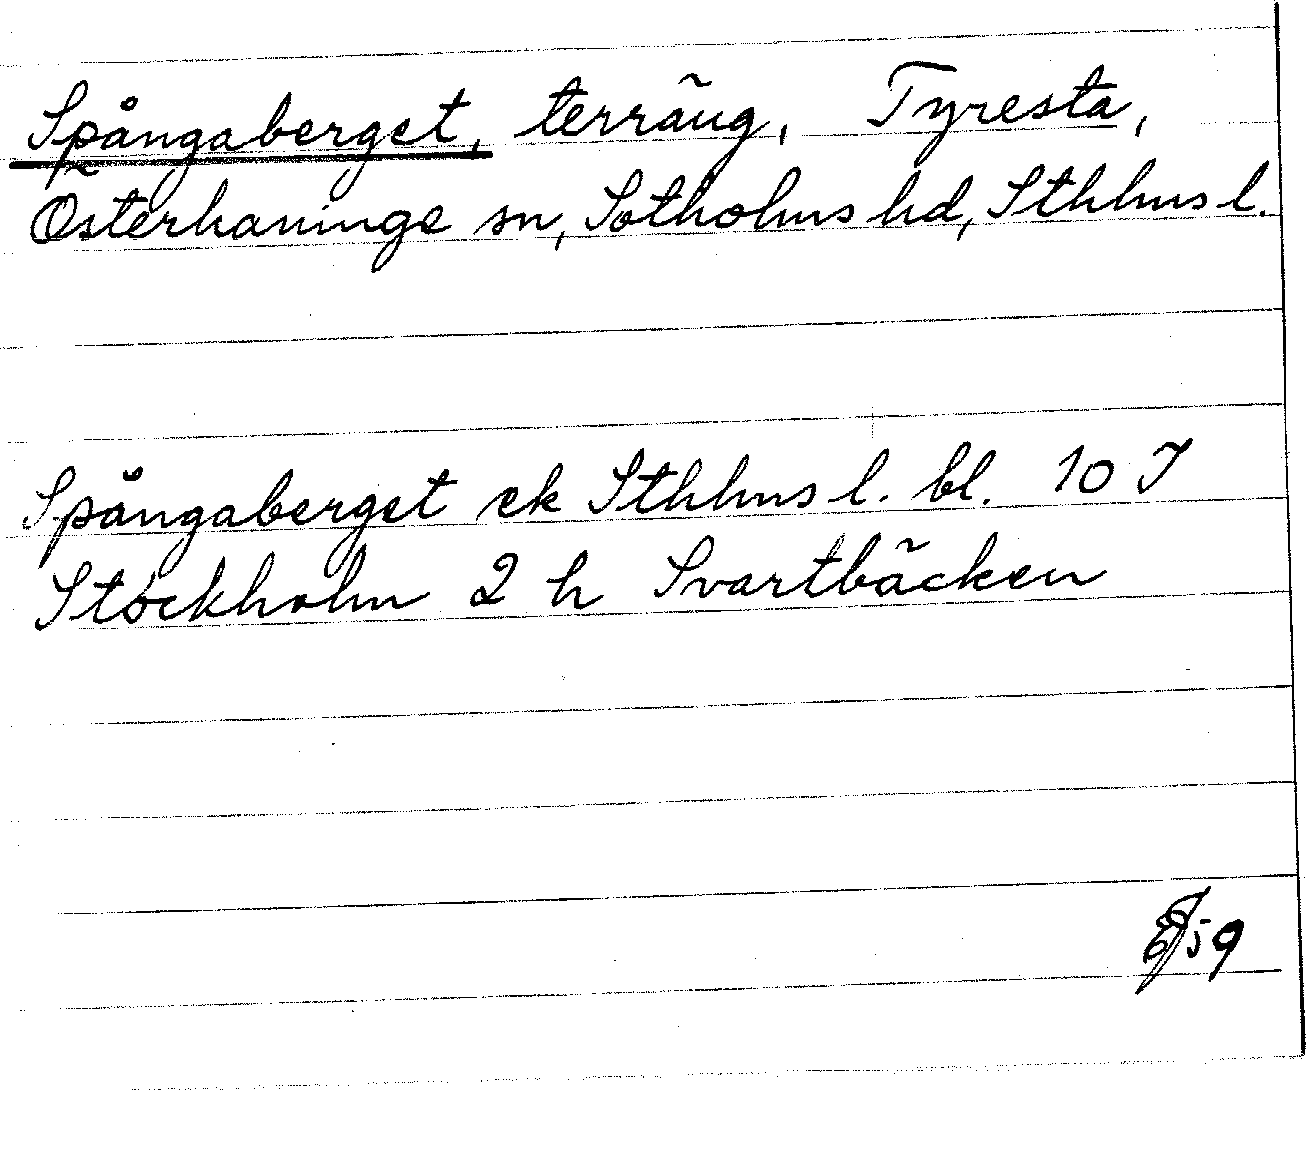 Spångaberget, terräng, Tyresta,
Österhaninge sn, Sotholms hd, Sthlms l.
Spångaberget ek Sthlms l. bl. 10 I
Stockholm 2 h Svartbäcken
59